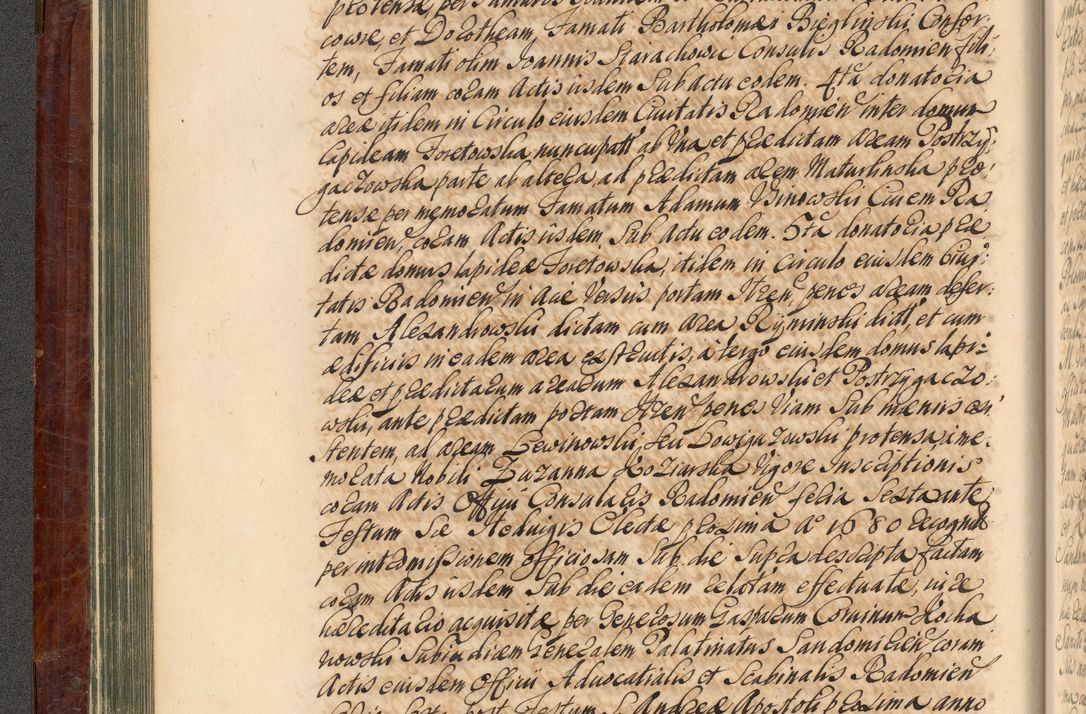 cowæ, et Dorotheam, Famati Bartholomæi Bieglinski Consor,
tem, Famati olim Joannis Starachowic Consulis Radomien fili,
os et filiam coram Actis iisdem Sub actu eodem. Ita donatoria
areæ itidem in Circulo eiusdem Civitatis Radomien inter domum
lapideam Foretowska nuncupatt ab Una et prædictam aream Postrzy,
gaczowska parte ab altera, ad prædictam aream Maturlinska pro,
tensæ per memoratum Famatum Adamum Usinowski Civem Ra,
domien, coram Actis iisdem, Sub Actu eodem. Ita donatoria præ
dictæ domus lapideæ Foretowska, itidem in Circulo eiusdem Civi,
tatis Radomien in Acie Versus portam Ilzen, penes aream deser,
tam Alexandrowski dictam cum area Ryminski dict, et cum
ædificiis in eadem area exstructis, a tergo eiusdem domus lapi,
deæ et prædictarum arearum Alexandrowski et Postrzygaczo,
wski, ante prædictam portam Ilzen penes Viam Sub mænris
stentem, ad aream Lewinowski, seu protensa, ime,
morata Nobili Zuzanna Koziarska Vigore Inscriptionis
coram Actis Officii Consularis Radomien feria Sexta ante
Festum Sæ Heduigis Electæ proxima Ao 1680 recognit
per intromissionem officiosam Sub die Supra descripta factam
coram Actis iisdem Sub die eadem relatam effectuatæ, iure
hæreditario acquisitæ per Generosum Gasparum Corvinum Kocha
nowski Subiudicem Generalem Palatinatus Sandomirien coram
Actis eiusdem Officii Advocatialis et Scabinalis Radomien
post Festum S. Andreæ Apostoli proxima anno